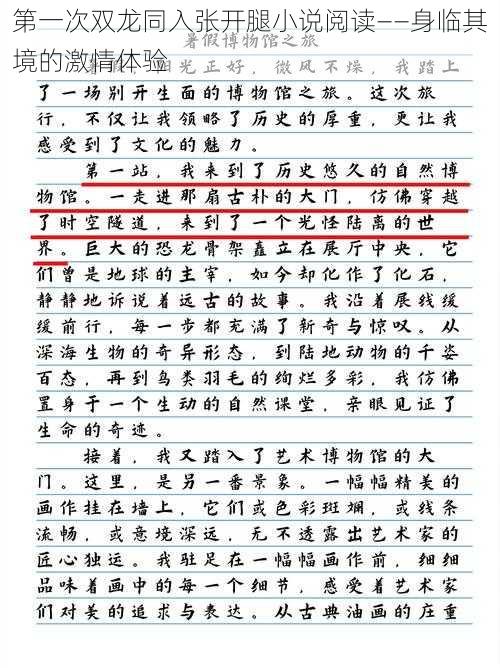 第一次双龙同入张开腿小说阅读——身临其
境的激情体验
暑假博物馆之旅
暑假,阳光正好,微风不燥,我踏上
了一场别开生面的博物馆之旅。这次旅
行,不仅让我领略了历史的厚重,更让我
感受到了文化的魅力。
第一站,我来到了历史悠久的自然博
物馆。一走进那扇古朴的大门,仿佛穿越
了时空隧道,来到了一个光怪陆离的世
界。巨大的恐龙骨架矗立在展厅中央,它
们曾是地球的主宰,如今却化作了化石,
静静地诉说着远古的故事。我沿着展线缓
缓前行,每一步都充满了新奇与惊叹。从
深海生物的奇异形态,到陆地动物的千姿
百态,再到鸟类羽毛的绚烂多彩,我仿佛
置身于一个生动的自然课堂,亲眼见证了
生命的奇迹。
接着,我又踏入了艺术博物馆的大
门。这里,是另一番景象。一幅幅精美的
画作挂在墙上,它们或色彩斑斓,或线条
流畅,或意境深远,无不透露出艺术家的
匠心独运。我驻足在一幅幅画作前,细细
品味着画中的每一个细节,感受着艺术家
们对美的追求与表达。从古典油画的庄重